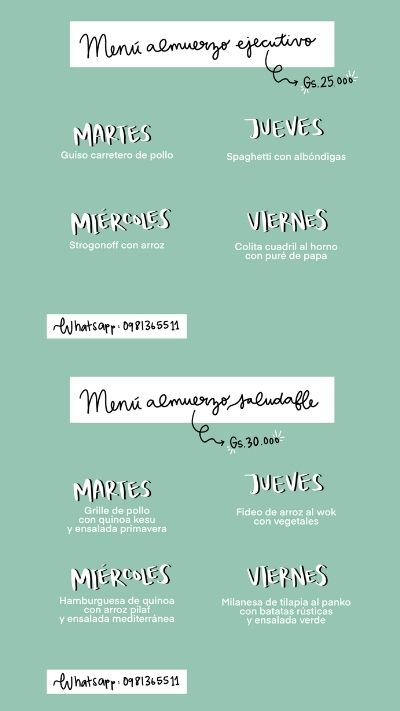 Menú almuerzo ejecutivo
Gs.25.000
MARTES
Guiso carretero de pollo
JUEVES
Spaghetti con albóndigas
MIÉRCOLES
Strogonoff con arroz
VIERNES
Colita cuadril al horno
con puré de papa
Whatsapp: 0981365511
Menú almuerzo saludable
Gs.30.000
MARTES
Grille de pollo
con quinoa kesu
y ensalada primavera
JUEVES
Fideo de arroz al wok
con vegetales
MIÉRCOLES
Hamburguesa de quinoa
con arroz pilaf
y ensalada mediterránea
VIERNES
Milanesa de tilapia al panko
con batatas rústicas
y ensalada verde
Whatsapp: 0981365511